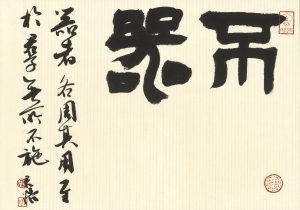 不器
器者各周其用至
於君子無所不施